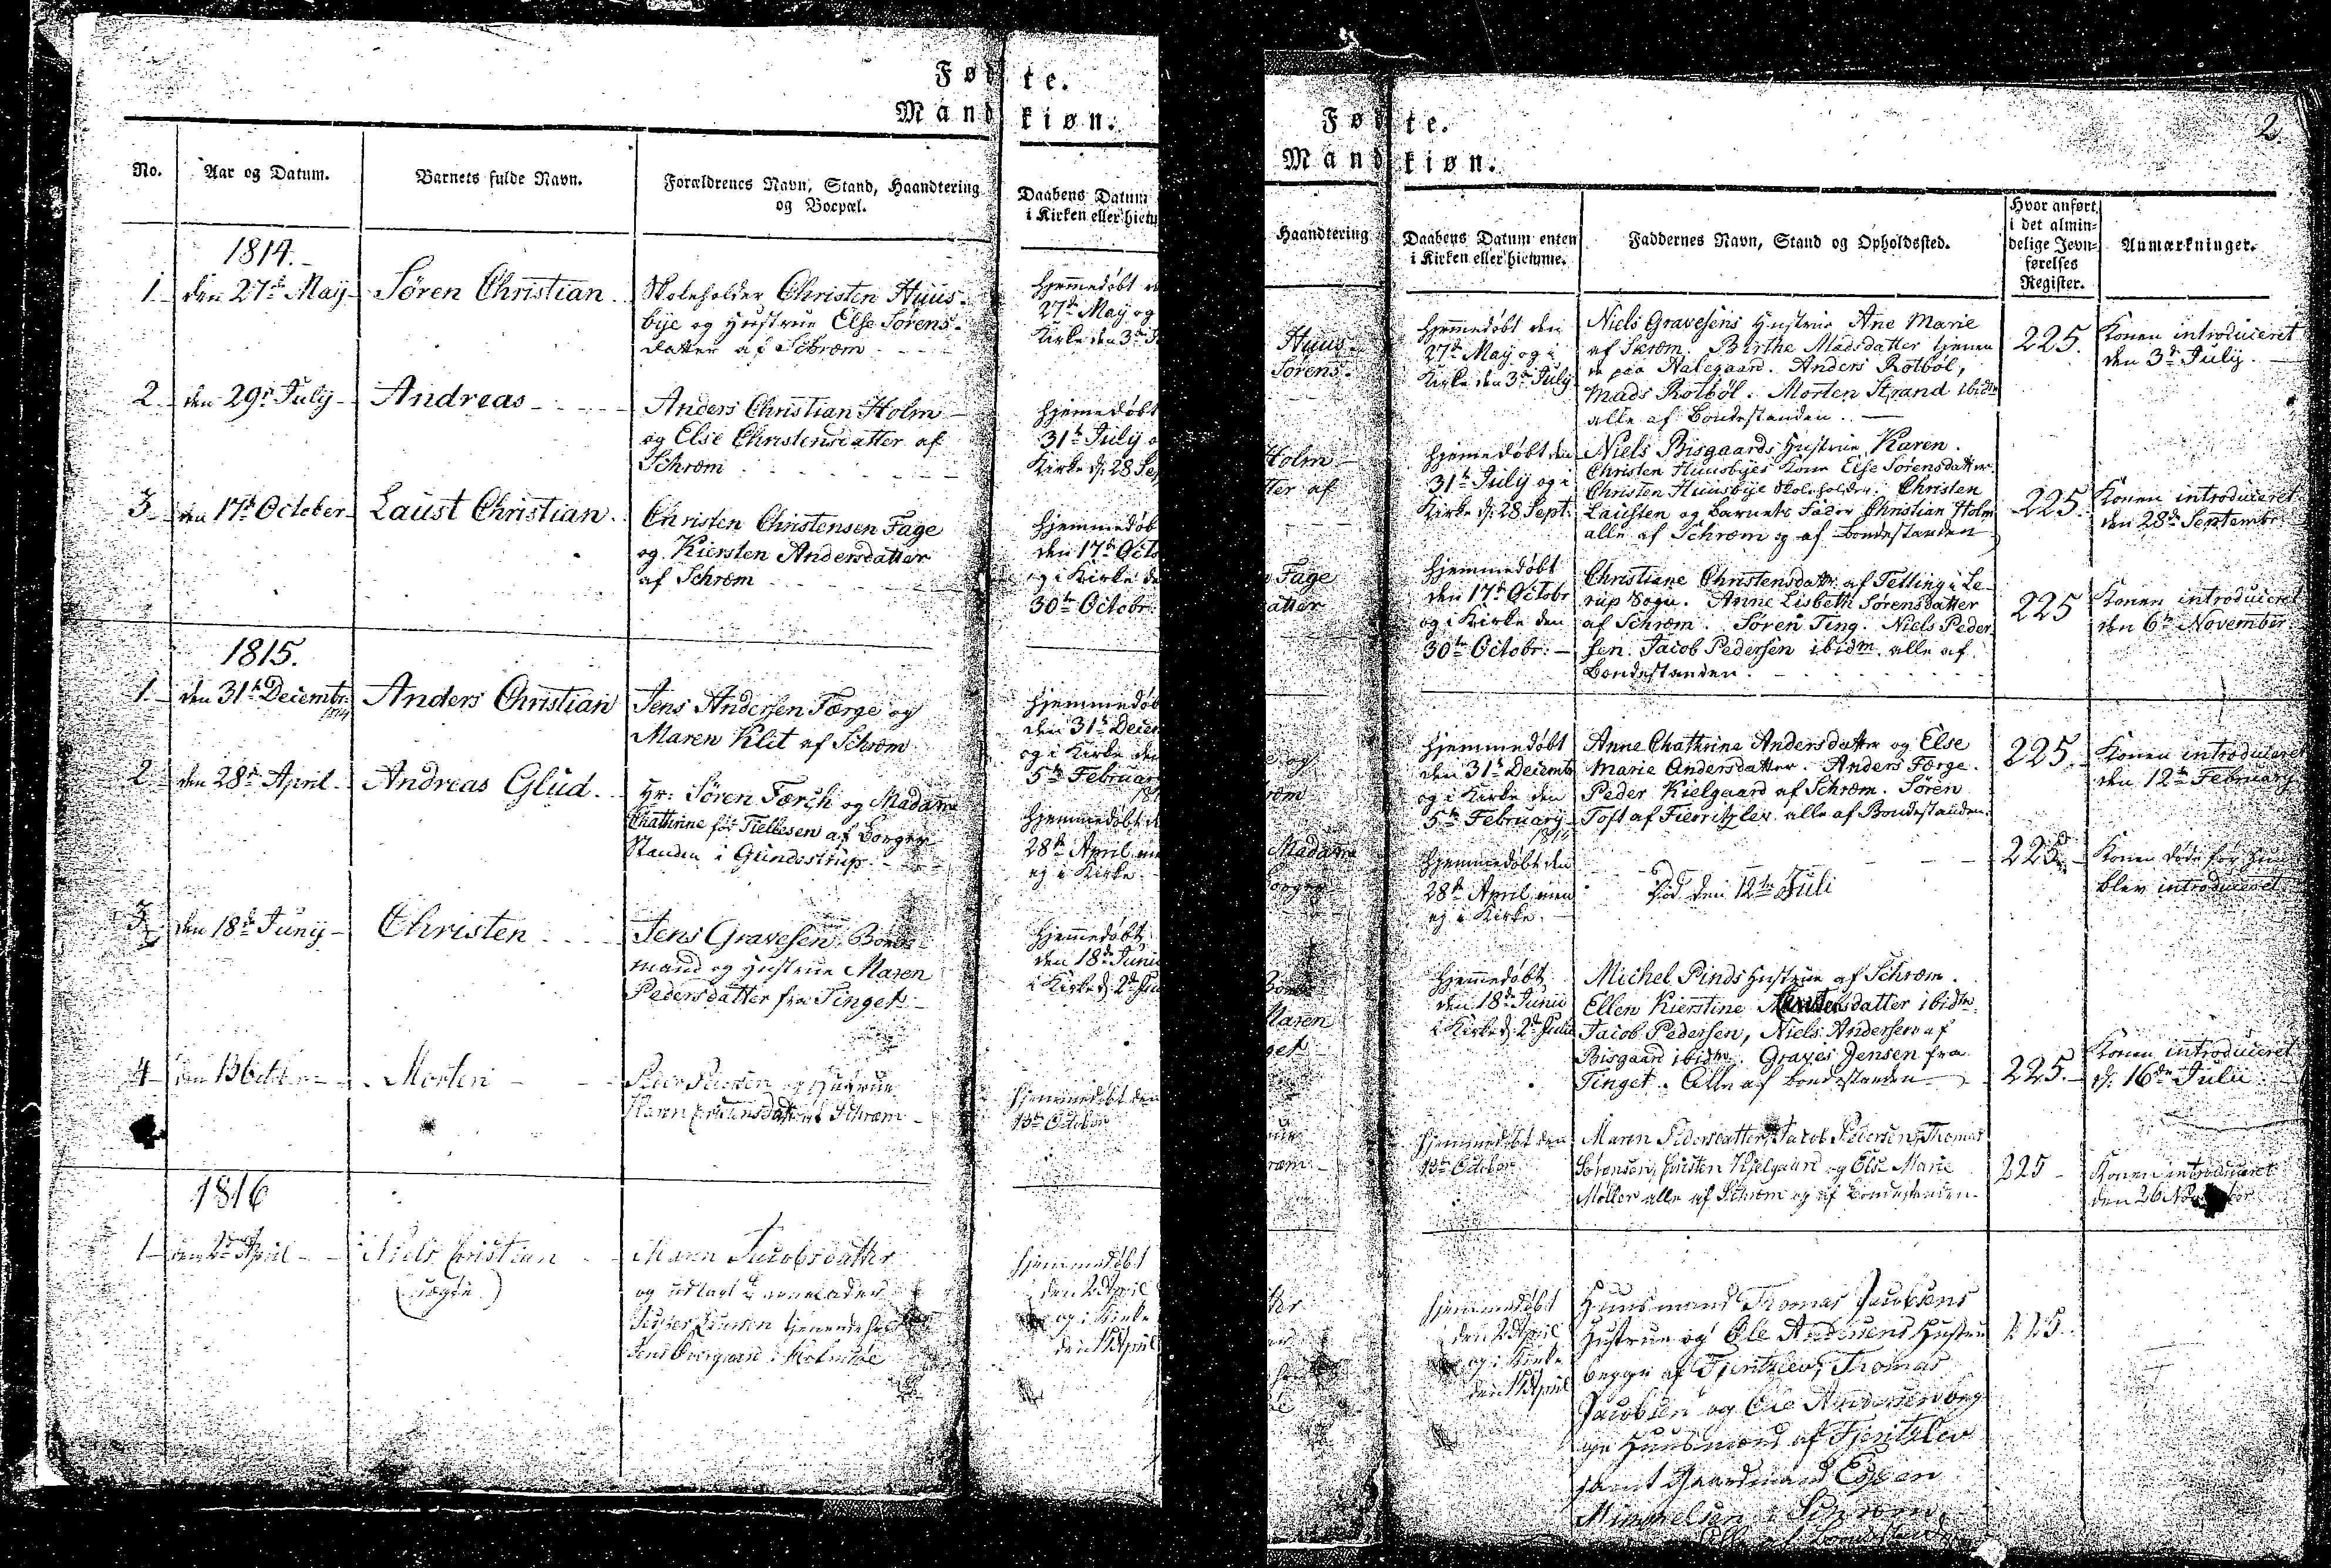 Fødte.
Mandkiøn.
No.
Aar og Datum.
Barnets fulde Navn.
Forældrenes Navn, Stand, Haandtering
og Boepæl.
Daabens Datum
i Kirken eller hiem
1814.
1. den 27de May Søren Christian.
Skoleholder Christen Huus-
bye og Hustrue Else Sørens-
datter af Schrøm
Hjemmedøbt
27de May og
Kirke den 3die
2. den 29de July Andreas
Anders Christian Holm
og Else Christensdatter af
Schrøm
Hjemmedøbt
31te July
Kirke d: 28 Sep
3. den 17de October Laust Christian.
Christen Christensen Fage
og Kiersten Andersdatter
af Schrøm
Hjemmedøb
den 17de Octo
og i Kirke de
30te Octobr.
1815.
1. den 31te Decembr. 1814 Anders Christian
Jens Andersen Færge og
Maren Klit af Schrøm
Hjemmedøb
den 31te Decem
og i Kirke den
5te Februar
2. den 28de April Andreas Glud.
Hr: Søren Færch og Madame
Chathrine før Tiellesen af Borger
Standen i Gundestrup.
Hjemmedøbt
28de April men
ej i Kirke
3. den 18de Juny Christen
Jens Gravesen, Bonde-
mand og Hustrue Maren
Pedersdatter fra Tinget
Hjemmedøbt
den 18de Junii
i Kirke d: 2de
4. October Morten
og Hustrue
af Schrøm
Hjemmedøbt den
13de October
1816
1. den 2den April Niels Christian
(uægte.)
Maren Jacobsdatter
og udlagt Barnefader
tienende hos
i Kolmsøe
Hjemmedøbt
den 2 April
og i Kirke
den April
Fødte.
2.
Mandkiøn.
Haandtering
Daabens Datum enten
i Kirken eller hiemme.
Faddernes Navn, Stand og Opholdssted.
Hvor anført
i det almin-
delige Jevn-
førelses
Register.
Anmærkninger.
Hjemmedøbt den
27de May og i
Kirke den 3die July
Niels Gravesens Hustrue Ane Marie
af Skrøm. Birthe Madsdatter tienen
de paa Aalegaard. Anders Rotbøl,
Mads Rotbøl. Morten Strand ibidm
alle af Bondestanden.
225.
Konen introduceret
den 3de July.
Hjemmedøbt den
31te July og i
Kirke d: 28 Sept:
Niels Bisgaards Hustrue Karen.
Christen Huusbyes Kone Else Sørensdatter.
Christen Huusbye Skoleholder. Christen
Laursen og Barnets Fader Christian Holm
alle af Schrøm og af Bondestanden
225.
Konen introduceret
den 28de Septembr.
Hjemmedøbt
den 17de Octobr
og i Kirke den
30te Octobr.
Christiane Christensdattr. af Telling i Le-
rup Sogn. Anne Lisbeth Sørensdatter
af Schrøm. Søren Ting. Niels Peder-
sen. Jacob Pedersen ibidm. alle af
Bondestanden.
225
Konen introduceret
den 6te November
Hjemmedøbt
den 31te Decembr
og i Kirke den
5te February
1815
Anne Chathrine Andersdatter og Else
Marie Andersdatter. Anders Færge.
Peder Kielgaard af Schrøm. Søren
Toft af Fierritzlev. alle af Bondestanden.
225.
Konen introduceret
den 12te February
Hjemmedøbt den
28de April men
ej i Kirke.
Død den 12te Juli
225
Konen døde før hun
blev introduceret
Hjemmedøbt
den 18de Junii
i Kirke d: 2de Julii
Michel Pinds Hustrue af Schrøm.
Ellen Kierstine datter ibidm.
Jacob Pedersen, Niels Andersen af
Bisgaard ibidm. Graves Jensen fra
Tinget. Alle af Bondestanden
225.
Konen introduceret
d: 16de Julii
Hjemmedøbt den
13de October
Maren Pedersdatter, Jacob Pedersen, Thomas
Sørensen, Christen Kjelgaard og Else Marie
Møller alle af Schrøm og af Bondestanden.
225
Konen introduceret
den 26
Hjemmedøbt
den 2 April
og i Kirke
den April
Huusmand Thomas Jacobsens
Hustrue og Ole Andersens Hustru
begge af Fjeritzlev, Thomas
Jacobsen og Ole Andersen beg-
ge Huusmænd af Fjeritzlev
samt Gaardmand Espen
Mikkelsen i Schrøm,
Alle af Bondestanden
225.